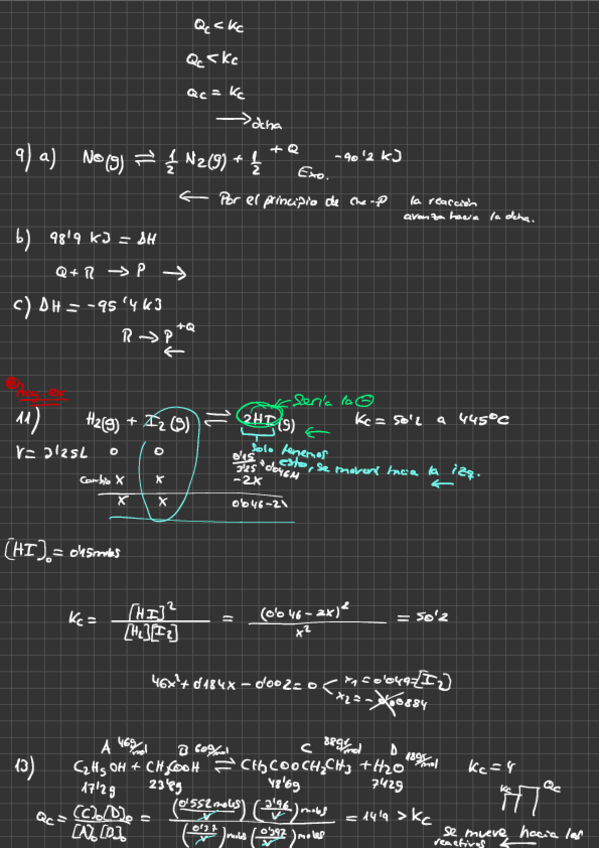 Qc < Kc
Qc < Kc
Qc = Kc
→ dcha
9) a) NO(g) ⇌ 1/2 N2(g) + 1/2 +Q -90'2 KJ
Exo.
← Por el principio de che-P la reacción
avanza hacia la dcha.
b) 98'9 KJ = ΔH
Q + R → P →
c) ΔH = -95'4 KJ
R → P +Q
←
11) H2(g) + I2(g) ⇌ 2HI(g) ← Sería la ⊖ Kc = 50'2 a 445ºC
←
V = 3'25L 0 0 0'15/3'25 = 0'046M
Solo tenemos esto, se moverá hacia la izq.
←
Cambio x x -2x
x x 0'046-2x
[HI]o = 0'15moles
Kc = [HI]^2/[H2][I2] = (0'046-2x)^2/x^2 = 50'2
46x^2+0'184x-0'002=0 x1=0'049=[I2]
x2=-0'00884
13) A 46g/mol B 60g/mol C 88g/mol D 18g/mol
C2H5OH + CH3COOH ⇌ CH3COOCH2CH3 + H2O Kc = 4
17'2g 23'8g 48'6g 71'2g
Qc = [C]o[D]o/[A]o[B]o = (0'552moles/V)(3'96/V)moles/(0'37/V)moles(0'397/V)moles = 14'9 > Kc
Kc Qc
se mueve hacia los
reactivos ←